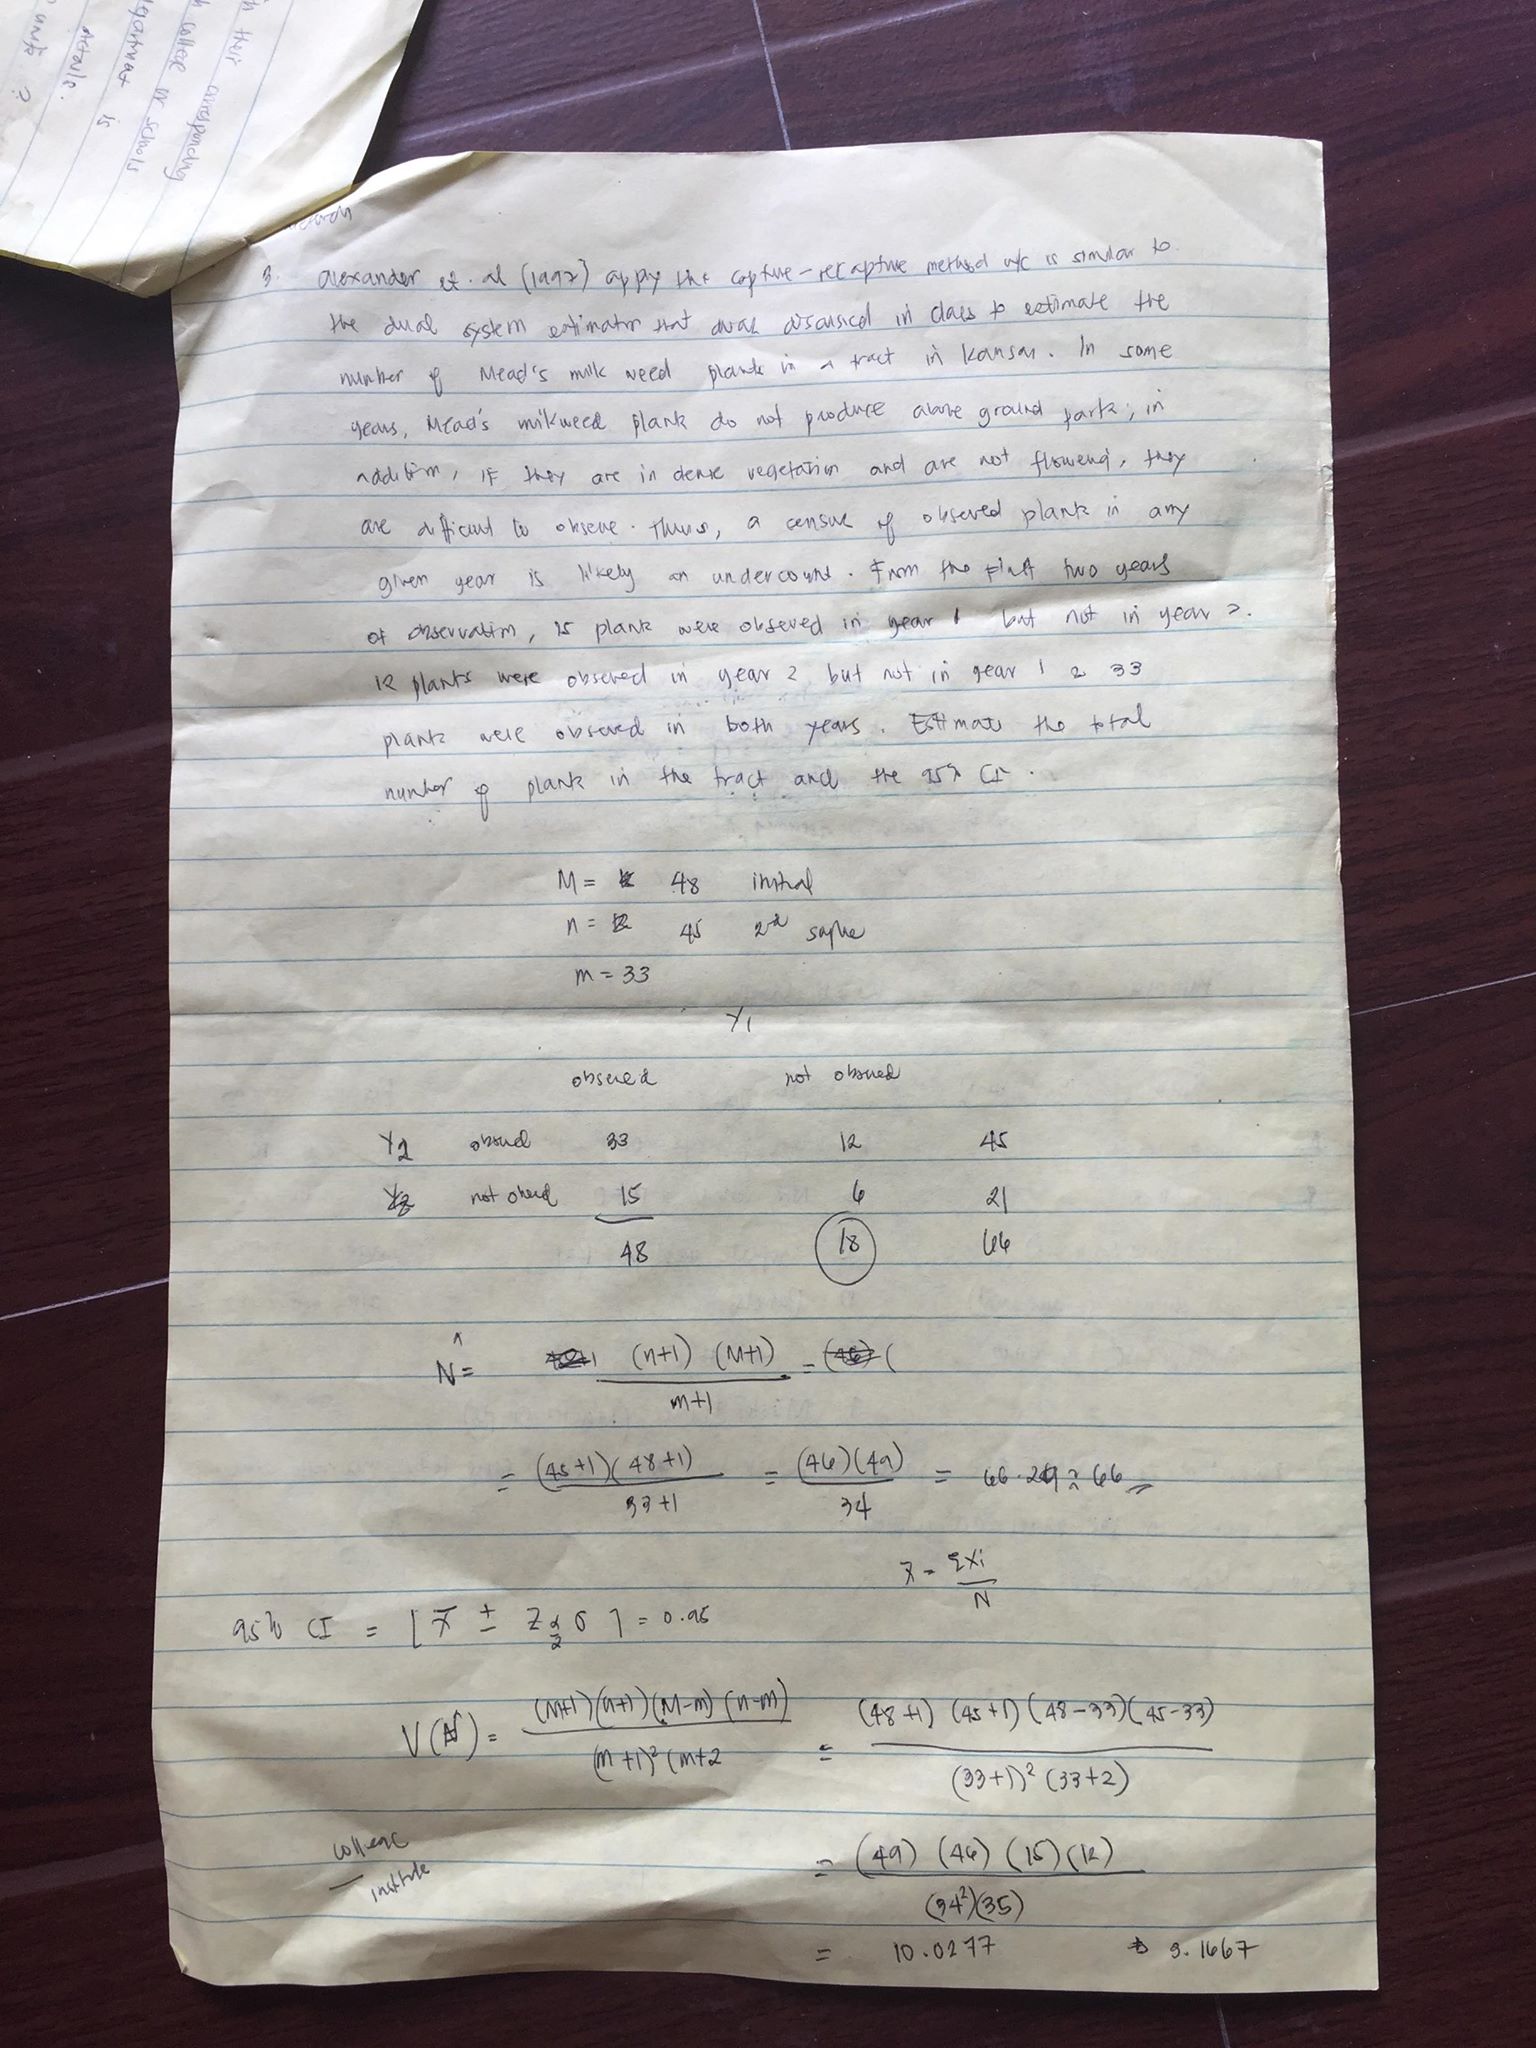 their corresponding
college or schools
is
details.
unit ?
3. Alexander et. al (1997) apply the capture-recapture method w/c is similar to
the dual system estimator that discussed in class to estimate the
number of Mead's milk weed plants in a tract in Kansas. In some
years, Mead's milkweed plants do not produce above ground parts; in
addition, if they are in dense vegetation and are not flowering, they
are difficult to observe. Thus, a census of observed plants in any
given year is likely an undercount. From the first two years
of observation, 15 plants were observed in year 1 but not in year 2.
12 plants were observed in year 2 but not in year 1 & 33
plants were observed in both years. Estimate the total
number of plants in the tract and the 95% CI.
M = 48 initial
n = 45 2nd
m = 33
Y1
observed not observed
Y2 observed 33 12 45
not observed 15 6 21
48 18 66
N̂ = (n+1) (M+1) / m+1 = (
= (45+1)(48+1) / 33+1 = (46)(49) / 34 = 66.29 ≈ 66
x̄ = Σxi / N
95% CI = [ x̄ ± Z α/2 σ ] = 0.95
V(N̂) = (M+1)(n+1)(M-m)(n-m) / (m+1)² (m+2 = (48+1) (45+1) (48-33)(45-33) / (33+1)² (33+2)
college
— institute
= (49) (46) (15)(12) / (34²)(35)
= 10.0277 3.1667